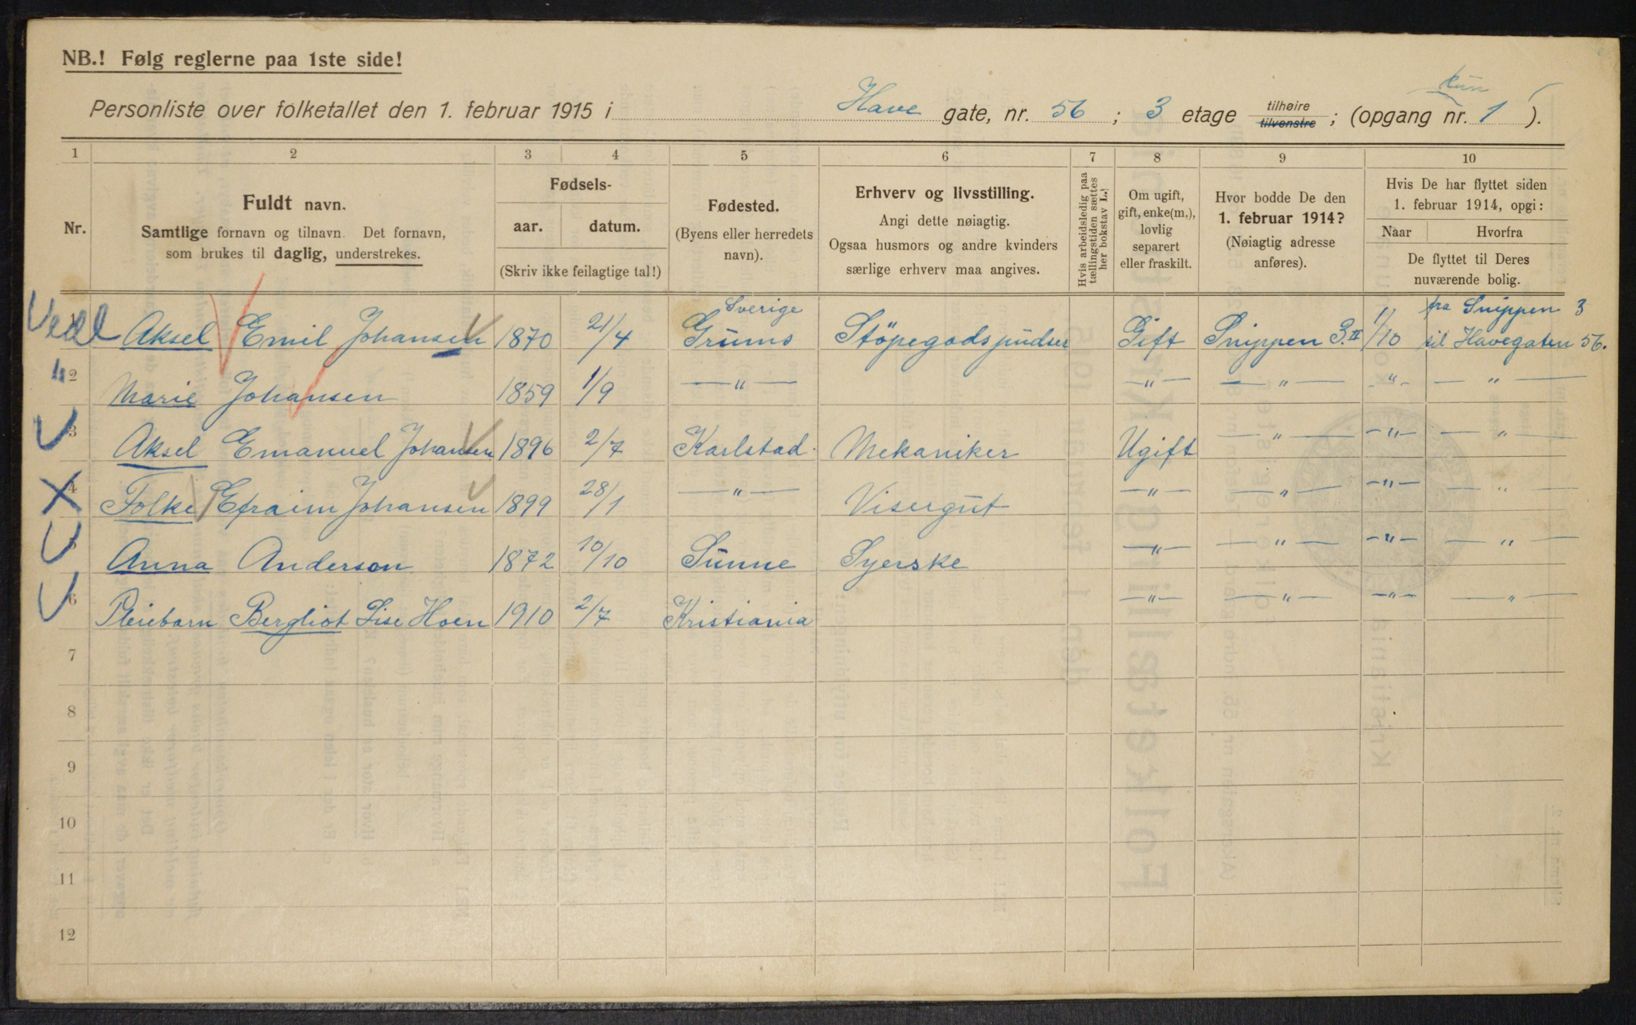 NB.! Følg reglerne paa 1ste side!
kun
Personliste over folketallet den 1. februar 1915 i Have gate, nr. 56 ; 3 etage tilhøire tilvenstre ; (opgang nr. 1 ).
1 2 3 4 5 6 7 8 9 10
Nr.
Fuldt navn.
Samtlige fornavn og tilnavn. Det fornavn,
som brukes til daglig, understrekes.
Fødsels-
aar. datum.
(Skriv ikke feilagtige tal!)
Fødested.
(Byens eller herredets
navn).
Erhverv og livsstilling.
Angi dette nøiagtig.
Ogsaa husmors og andre kvinders
særlige erhverv maa angives.
Hvis arbeidsledig paa
tællingstiden sættes
her bokstav L.!
Om ugift,
gift, enke(m.),
lovlig
separert
eller fraskilt.
Hvor bodde De den
1. februar 1914?
(Nøiagtig adresse
anføres).
Hvis De har flyttet siden
1. februar 1914, opgi:
Naar Hvorfra
De flyttet til Deres
nuværende bolig.
Sverige fra Snippen 3
Aksel Emil Johansen 1870 21/4 Grums Støpegodspudser Gift Snippen 3.II 1/10 til Havegaten 56.
2 Marie Johansen 1859 1/9 —"— —"— —"— —"— —"—
3 Aksel Emanuel Johansen 1896 2/7 Karlstad. Mekaniker Ugift —"— —"— —"—
4 Folke Efraim Johansen 1899 28/1 —"— Visergut —"— —"— —"— —"—
Anna Anderson 1872 10/10 Sunne Syerske —"— —"— —"— —"—
6 Pleiebarn Bergliot Lise Hoen 1910 2/7 Kristiania —"— —"— —"— —"—
7
8
9
10
11
12